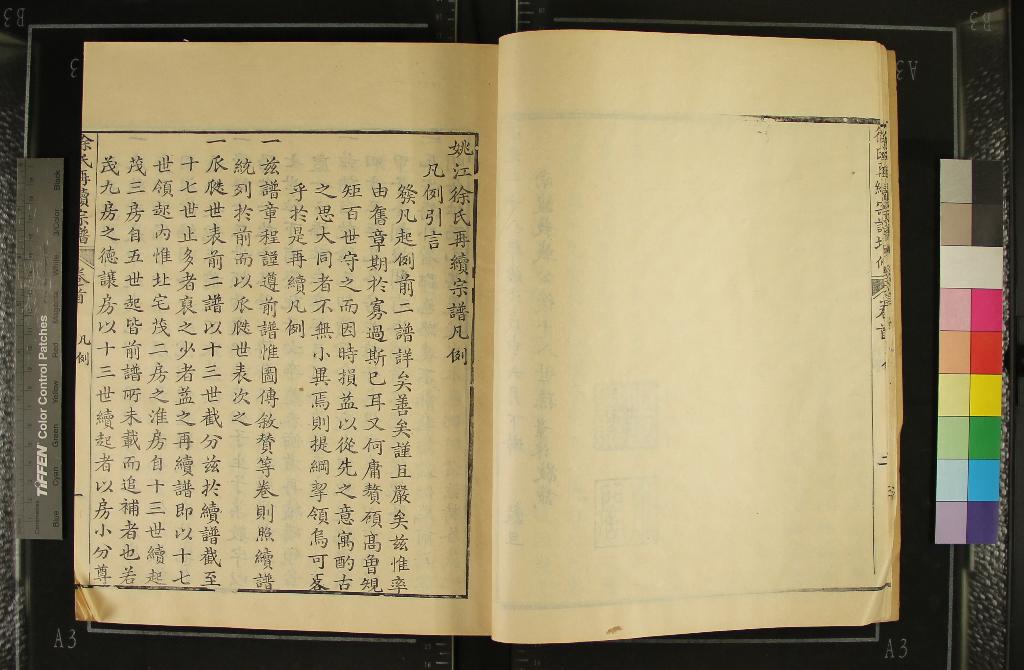 姚江徐氏再續宗譜凡例
凡例引言
發凡起例前二譜詳矣善矣謹且嚴矣茲惟率
由舊章期於寡過斯已耳又何庸贅碩高曾規
矩百世守之而因時損益以從先之意寓酌古
之思大同者不無小異焉則提綱挈領烏可畧
乎於是再續凡例
一茲譜章程謹遵前譜惟圖傳敘贊等卷則照續譜
統列於前而以瓜瓞世表次之
一瓜瓞世表前二譜以十三世截分茲於續譜截至
十七世止多者裒之少者益之再續譜即以十七
世領起內惟北宅茂二房之淮房自十三世續起
茂三房自五世起皆前譜所未載而追補者也若
茂九房之德讓房以十三世續起者以房小分尊
徐氏再續宗譜
卷首
凡例
一
卷首
二
TIFFEN Color Control Patches
A3
A3
A3
B3